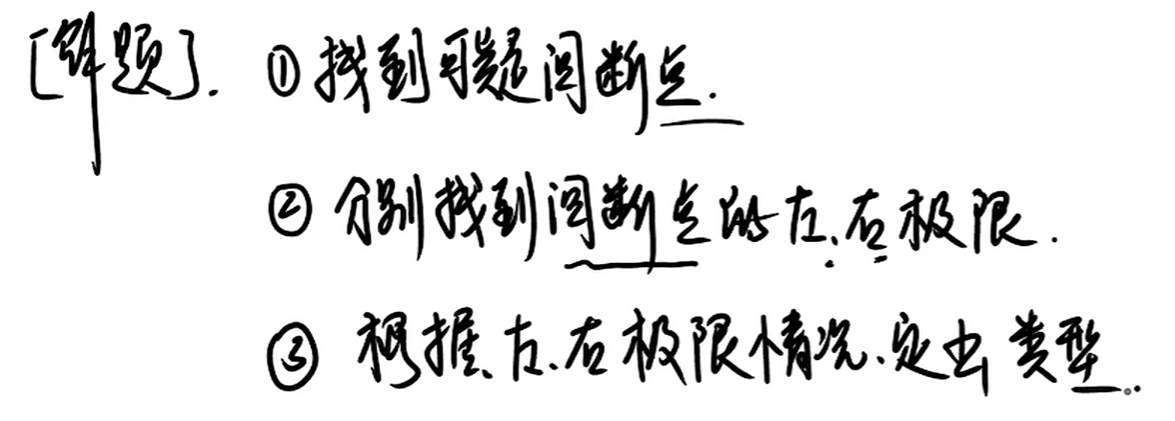 [解题]. ①找到可疑间断点.
②分别找到间断点的左、右极限.
③根据左、右极限情况、定出类型.